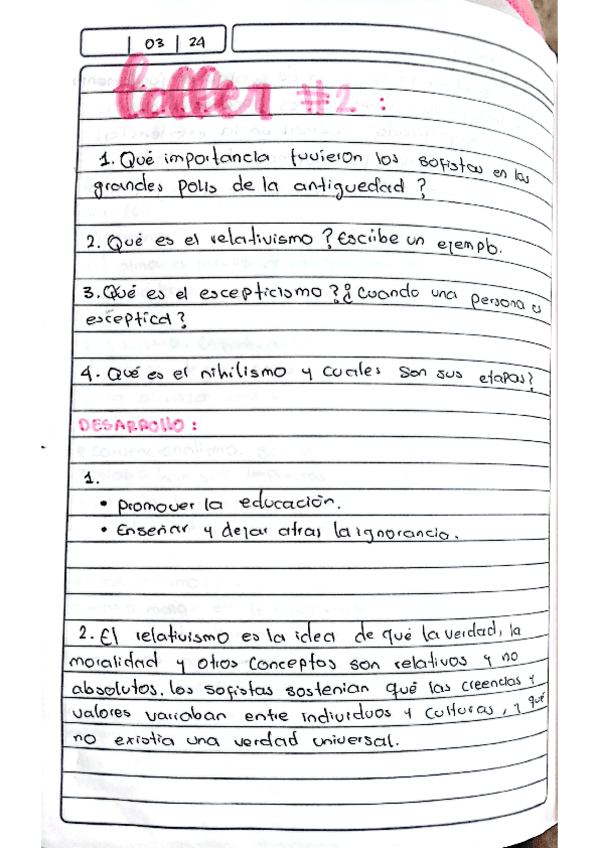 | 03 | 24
taller #2 :
1. Qué importancia tuvieron los sofistas en las
grandes polis de la antiguedad ?
2. Qué es el relativismo ? Escribe un ejemplo.
3. Qué es el escepticismo ? ¿Cuando una persona es
esceptica ?
4. Qué es el nihilismo y cuales son sus etapas?
DESARROllO :
1.
• promover la educación.
• Enseñar y dejar atras la ignorancia.
2. El relativismo es la idea de qué la verdad, la
moralidad y otros conceptos son relativos y no
absolutos. los sofistas sostenian qué las creencias y
valores variaban entre individuos y culturas, y qué
no existia una verdad universal.